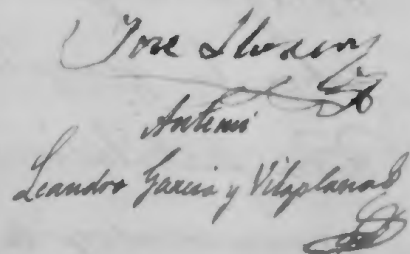 José
Ante mi
Leandro Garcia y Vilaplana